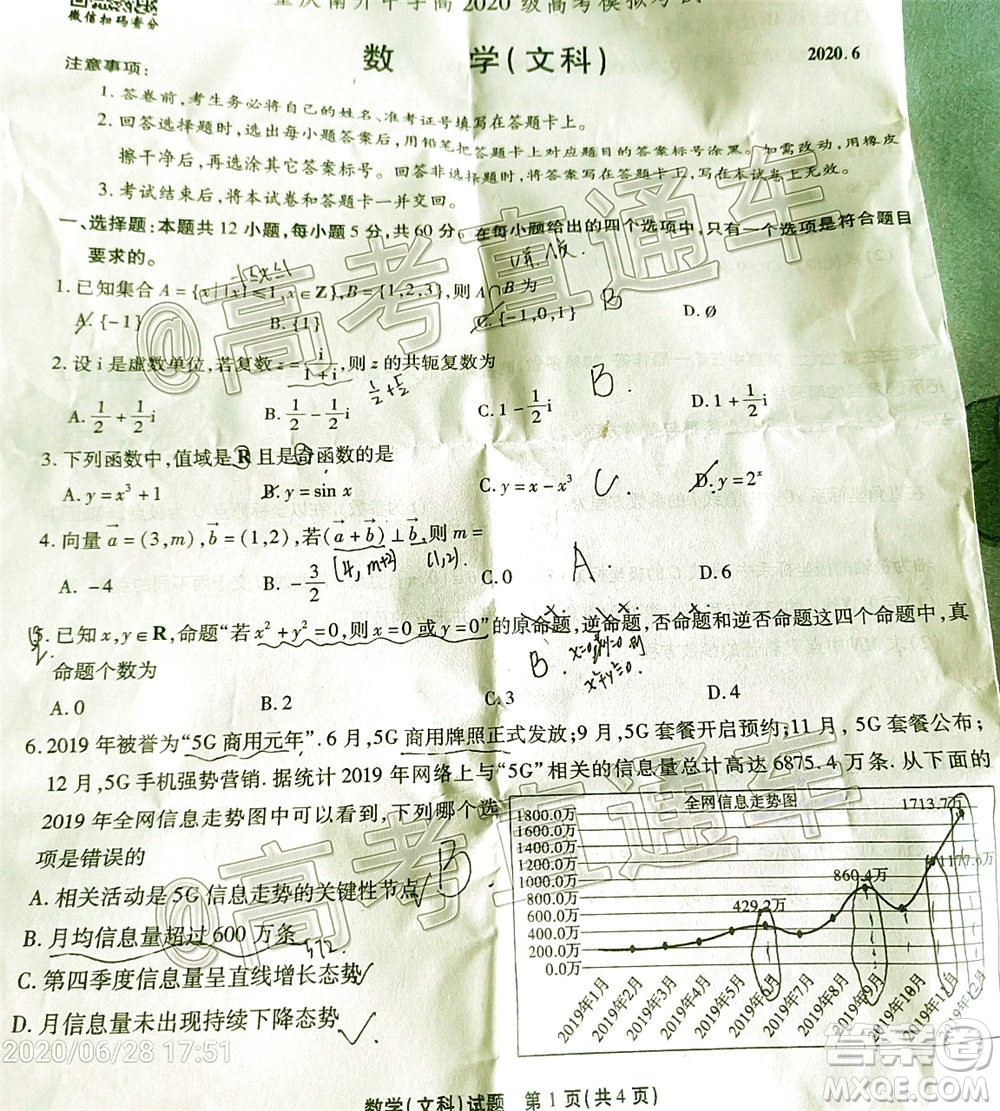 微信扫码查分
重庆南开中学高2020级高考模拟考试
数 学(文科) 2020.6
注意事项:
1. 答卷前,考生务必将自己的姓名、准考证号填写在答题卡上。
2. 回答选择题时,选出每小题答案后,用铅笔把答题卡上对应题目的答案标号涂黑。如需改动,用橡皮
擦干净后,再选涂其它答案标号。回答非选择题时,将答案写在答题卡上,写在本试卷上无效。
3. 考试结束后,将本试卷和答题卡一并交回。
一、选择题:本题共 12 小题,每小题 5 分,共 60 分。在每小题给出的四个选项中,只有一个选项是符合题目
要求的。
-1≤x≤1
1. 已知集合 A={x||x|≤1,x∈Z},B={1,2,3},则 A∩B 为 B
A. {-1} B. {1} C. {-1,0,1} D. ∅
2. 设 i 是虚数单位,若复数 z=i/(1+i),则 z 的共轭复数为 B.
A. 1/2+1/2i B. 1/2-1/2i C. 1-1/2i D. 1+1/2i
3. 下列函数中,值域是 R 且是奇函数的是
A. y=x³+1 B. y=sin x C. y=x-x³ C. D. y=2ˣ
4. 向量 a→=(3,m),b→=(1,2),若(a→+b→)⊥b→,则 m=
(4, m+2) (1,2) A.
A. -4 B. -3/2 C. 0 D. 6
5. 已知 x,y∈R,命题“若 x²+y²=0,则 x=0 或 y=0”的原命题,逆命题,否命题和逆否命题这四个命题中,真
命题个数为 B. x=0或y=0 则
x²+y²=0.
A. 0 B. 2 C. 3 D. 4
6. 2019 年被誉为“5G 商用元年”. 6 月,5G 商用牌照正式发放;9 月,5G 套餐开启预约;11 月,5G 套餐公布;
12 月,5G 手机强势营销. 据统计 2019 年网络上与“5G”相关的信息量总计高达 6875.4 万条. 从下面的
2019 年全网信息走势图中可以看到,下列哪个选
项是错误的 B
A. 相关活动是 5G 信息走势的关键性节点
B. 月均信息量超过 600 万条 572
C. 第四季度信息量呈直线增长态势
D. 月信息量未出现持续下降态势
全网信息走势图
1800.0万
1600.0万
1400.0万
1200.0万
1000.0万
800.0万
600.0万
400.0万
200.0万
0.0万
429.2万
860.4万
1177.6万
1713.7万
2019年1月
2019年2月
2019年3月
2019年4月
2019年5月
2019年6月
2019年7月
2019年8月
2019年9月
2019年10月
2019年11月
2019年12月
2020/06/28 17:51
数学(文科)试题 第 1 页(共 4 页)
@高考直通车
@高考直通车
答案圈
MXQE.COM